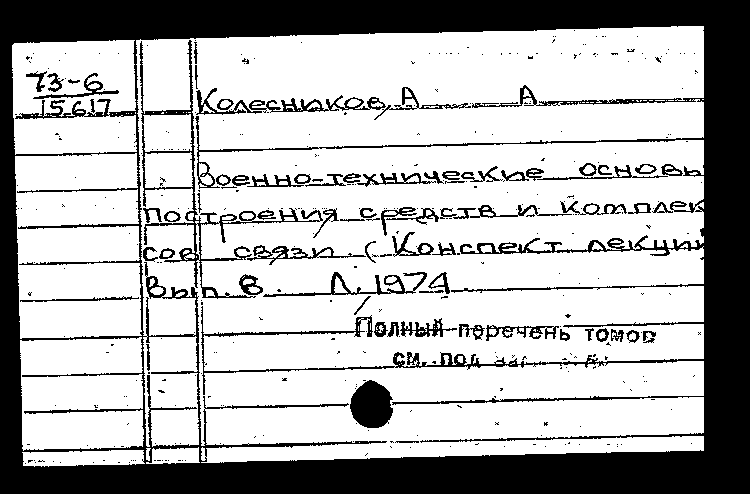 73-6
15617
Колесников, А А
Военно-технические основы
построения средств и комплек
сов связи. (Конспект лекций
Вып. 6. Л. 1974.
Полный перечень томов
см. под